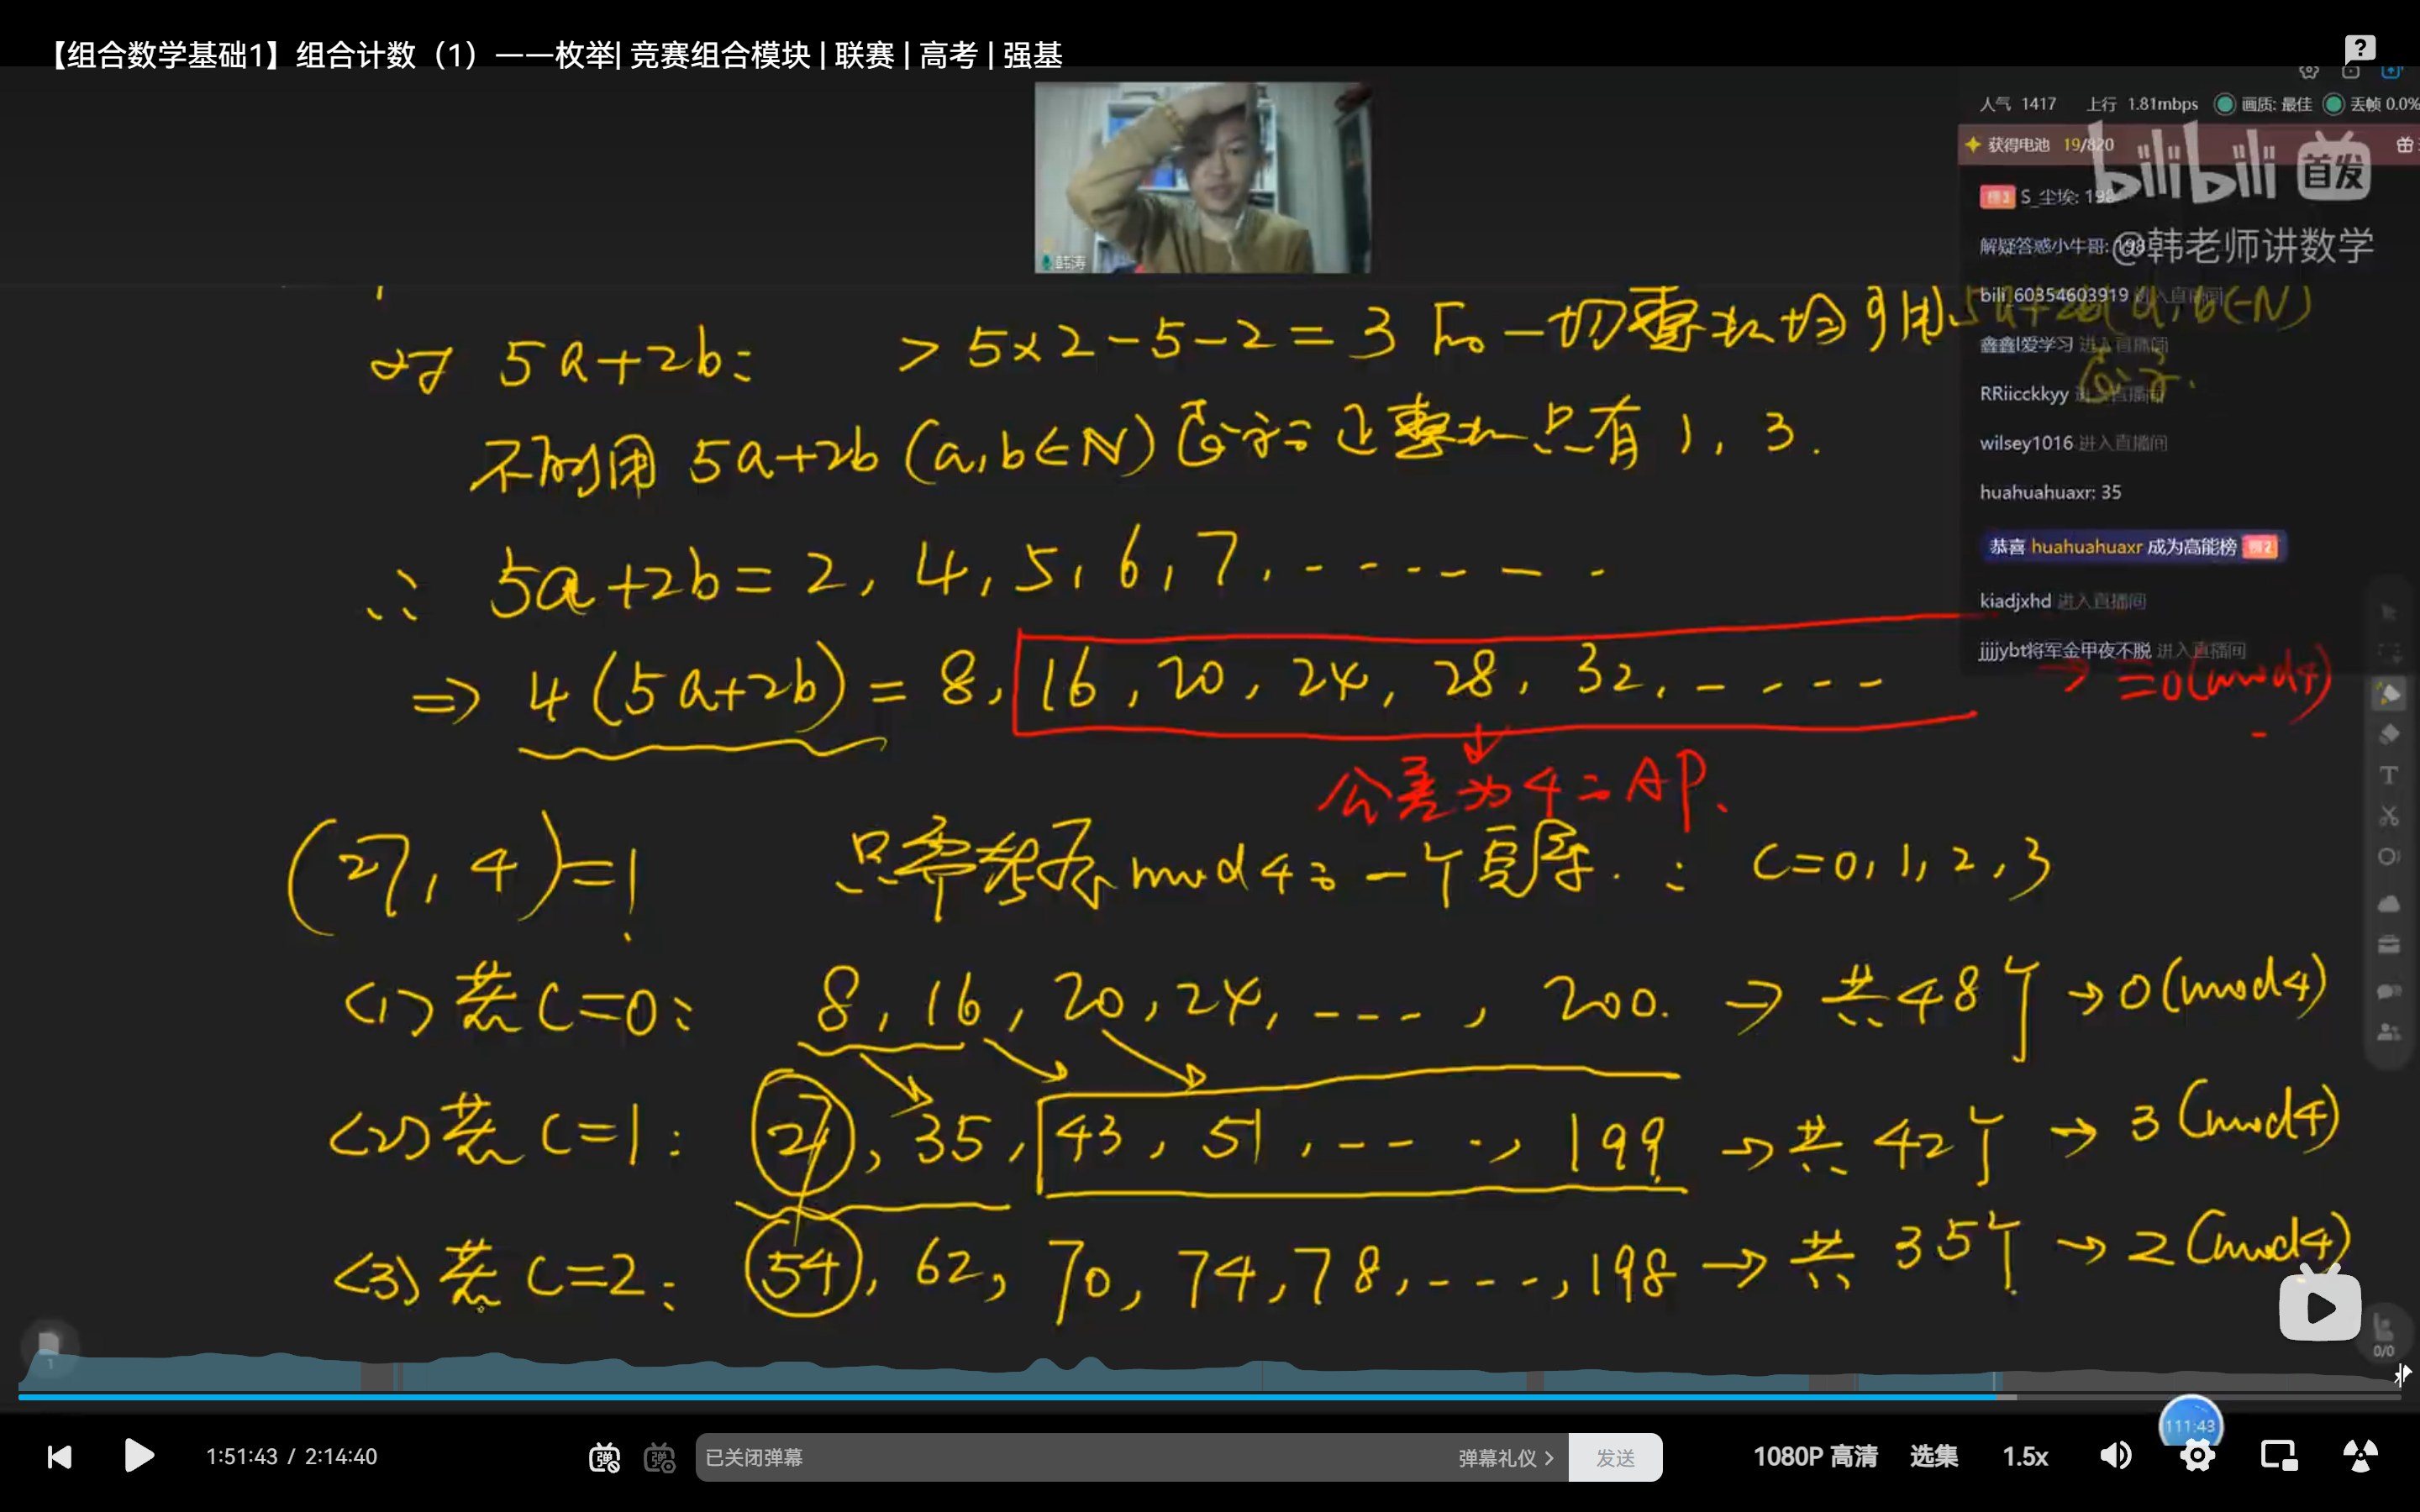 【组合数学基础1】组合计数（1）——枚举| 竞赛组合模块 | 联赛 | 高考 | 强基
人气 1417 上行 1.81mbps 画质: 最佳 丢帧 0.0%
获得电池 19/820
bilibili 首发
S_尘埃: 198
解疑答惑小牛哥: 198
@韩老师讲数学
bili_60354603919 进入直播间
鑫鑫l爱学习 进入直播间
RRiicckkyy 进入直播间
wilsey1016 进入直播间
huahuahuaxr: 35
恭喜 huahuahuaxr 成为高能榜 榜2
kiadjxhd 进入直播间
jjjjybt将军金甲夜不脱 进入直播间
韩涛
对于 5a+2b: > 5×2-5-2=3 的一切整数均可用 5a+2b(a,b∈N) 表示.
不能用 5a+2b (a,b∈N) 表示の正整数只有 1, 3.
∴ 5a+2b = 2, 4, 5, 6, 7, ------
⇒ 4(5a+2b) = 8, 16, 20, 24, 28, 32, ---- → ≡0(mod4)
公差为4の AP.
(27, 4)=1 只需考虑 mod 4の一个完系. : C=0, 1, 2, 3
<1> 若 C=0: 8, 16, 20, 24, ----, 200. → 共48个 → 0(mod4)
<2> 若 C=1: 27, 35, 43, 51, ----, 199 → 共 42个 → 3(mod4)
<3> 若 C=2: 54, 62, 70, 74, 78, ----, 198 → 共 35个 → 2(mod4)
1
0/0
111:43
1:51:43 / 2:14:40
弹
弹
已关闭弹幕
弹幕礼仪 >
发送
1080P 高清
选集
1.5x